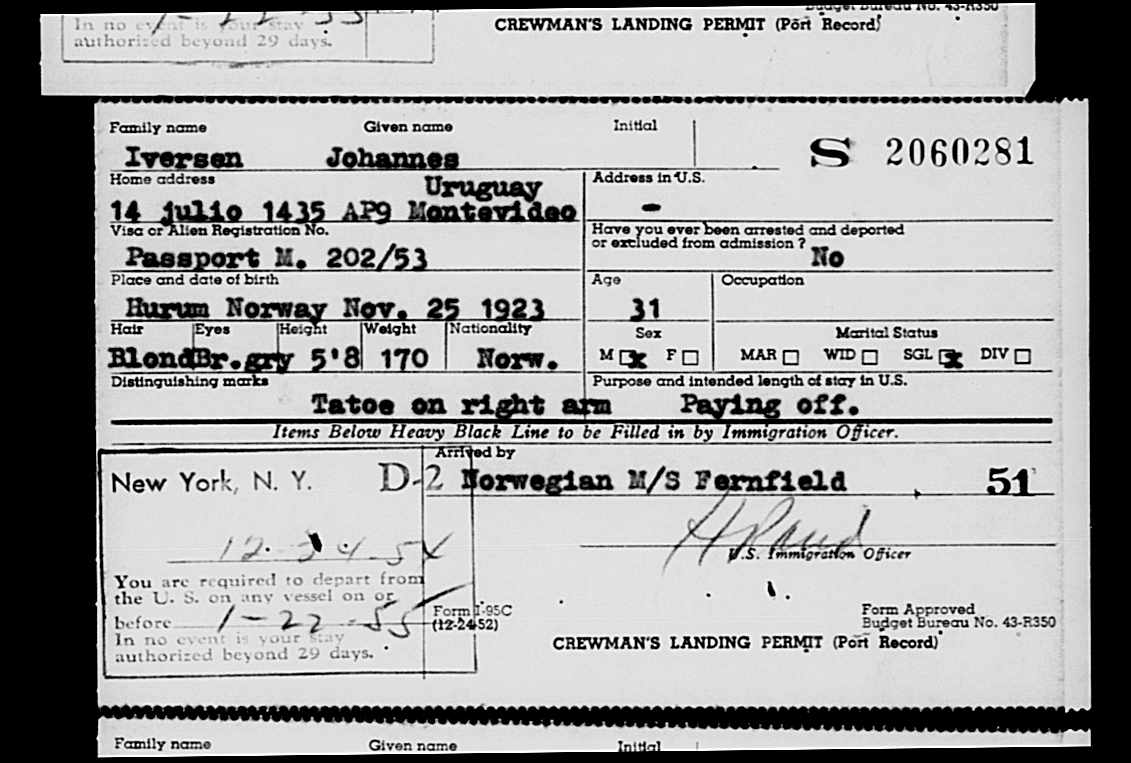 Budget Bureau No. 43-R350
In no event is your stay
authorized beyond 29 days.
CREWMAN'S LANDING PERMIT (Port Record)
Family name Given name Initial
Iversen Johannes
S 2060281
Home address Address in U.S.
Uruguay
14 julio 1435 AP9 Montevideo -
Visa or Alien Registration No. Have you ever been arrested and deported
or excluded from admission?
Passport M. 202/53 No
Place and date of birth Age Occupation
Hurum Norway Nov. 25 1923 31
Hair Eyes Height Weight Nationality Sex Marital Status
Blond Br.gry 5'8 170 Norw. M x F MAR WID SGL x DIV
Distinguishing marks Purpose and intended length of stay in U.S.
Tatoe on right arm Paying off.
Items Below Heavy Black Line to be Filled in by Immigration Officer.
Arrived by
New York, N. Y. D-2 Norwegian M/S Fernfield 51
12-24-54
U.S. Immigration Officer
You are required to depart from
the U. S. on any vessel on or
before 1-22-55
In no event is your stay
authorized beyond 29 days.
Form I-95C
(12-24-52)
Form Approved
Budget Bureau No. 43-R350
CREWMAN'S LANDING PERMIT (Port Record)
Family name Given name Initial